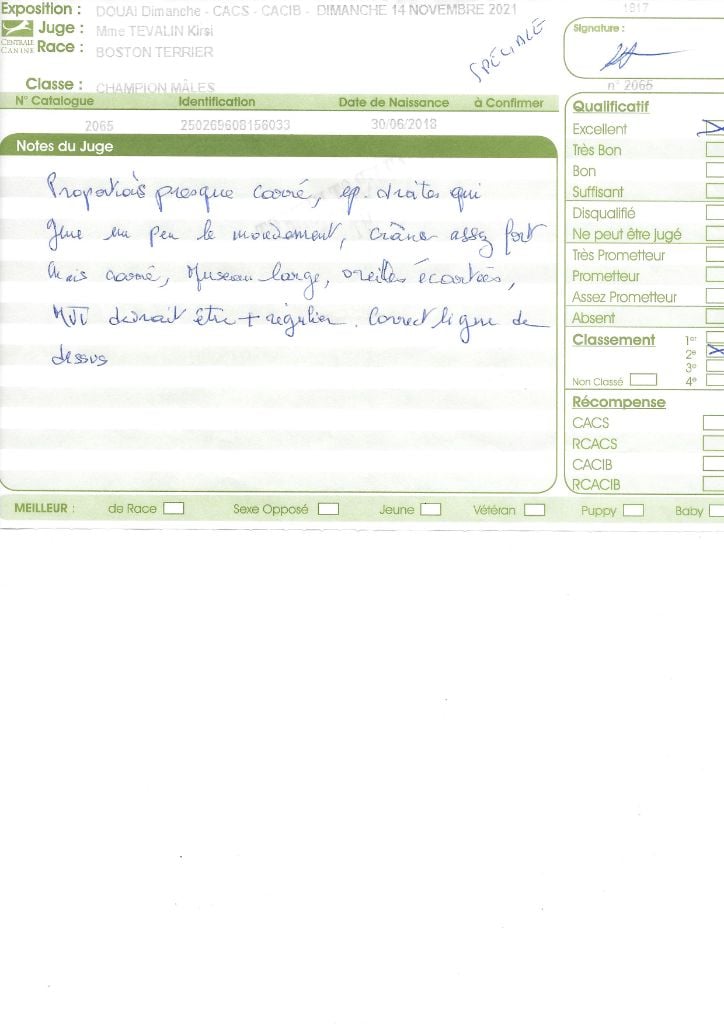 Exposition : DOUAI Dimanche - CACS - CACIB - DIMANCHE 14 NOVEMBRE 2021 1817
Juge : Mme TEVALIN Kirsi
CENTRALE CANINE Race : BOSTON TERRIER
SPÉCIALE
Signature :
Classe : CHAMPION MÂLES
n° 2065
N° Catalogue Identification Date de Naissance à Confirmer
2065 250269608156033 30/06/2018
Notes du Juge
Proportions presque carré, ep. droites qui
gène un peu le mouvement, crâne assez fort
mais carré, Museau large, oreilles écartées,
MVT devrait être + régulier. Correct ligne de
dessus
Qualificatif
Excellent
Très Bon
Bon
Suffisant
Disqualifié
Ne peut être jugé
Très Prometteur
Prometteur
Assez Prometteur
Absent
Classement 1er
2e
3e
Non Classé 4e
Récompense
CACS
RCACS
CACIB
RCACIB
MEILLEUR : de Race Sexe Opposé Jeune Vétéran Puppy Baby